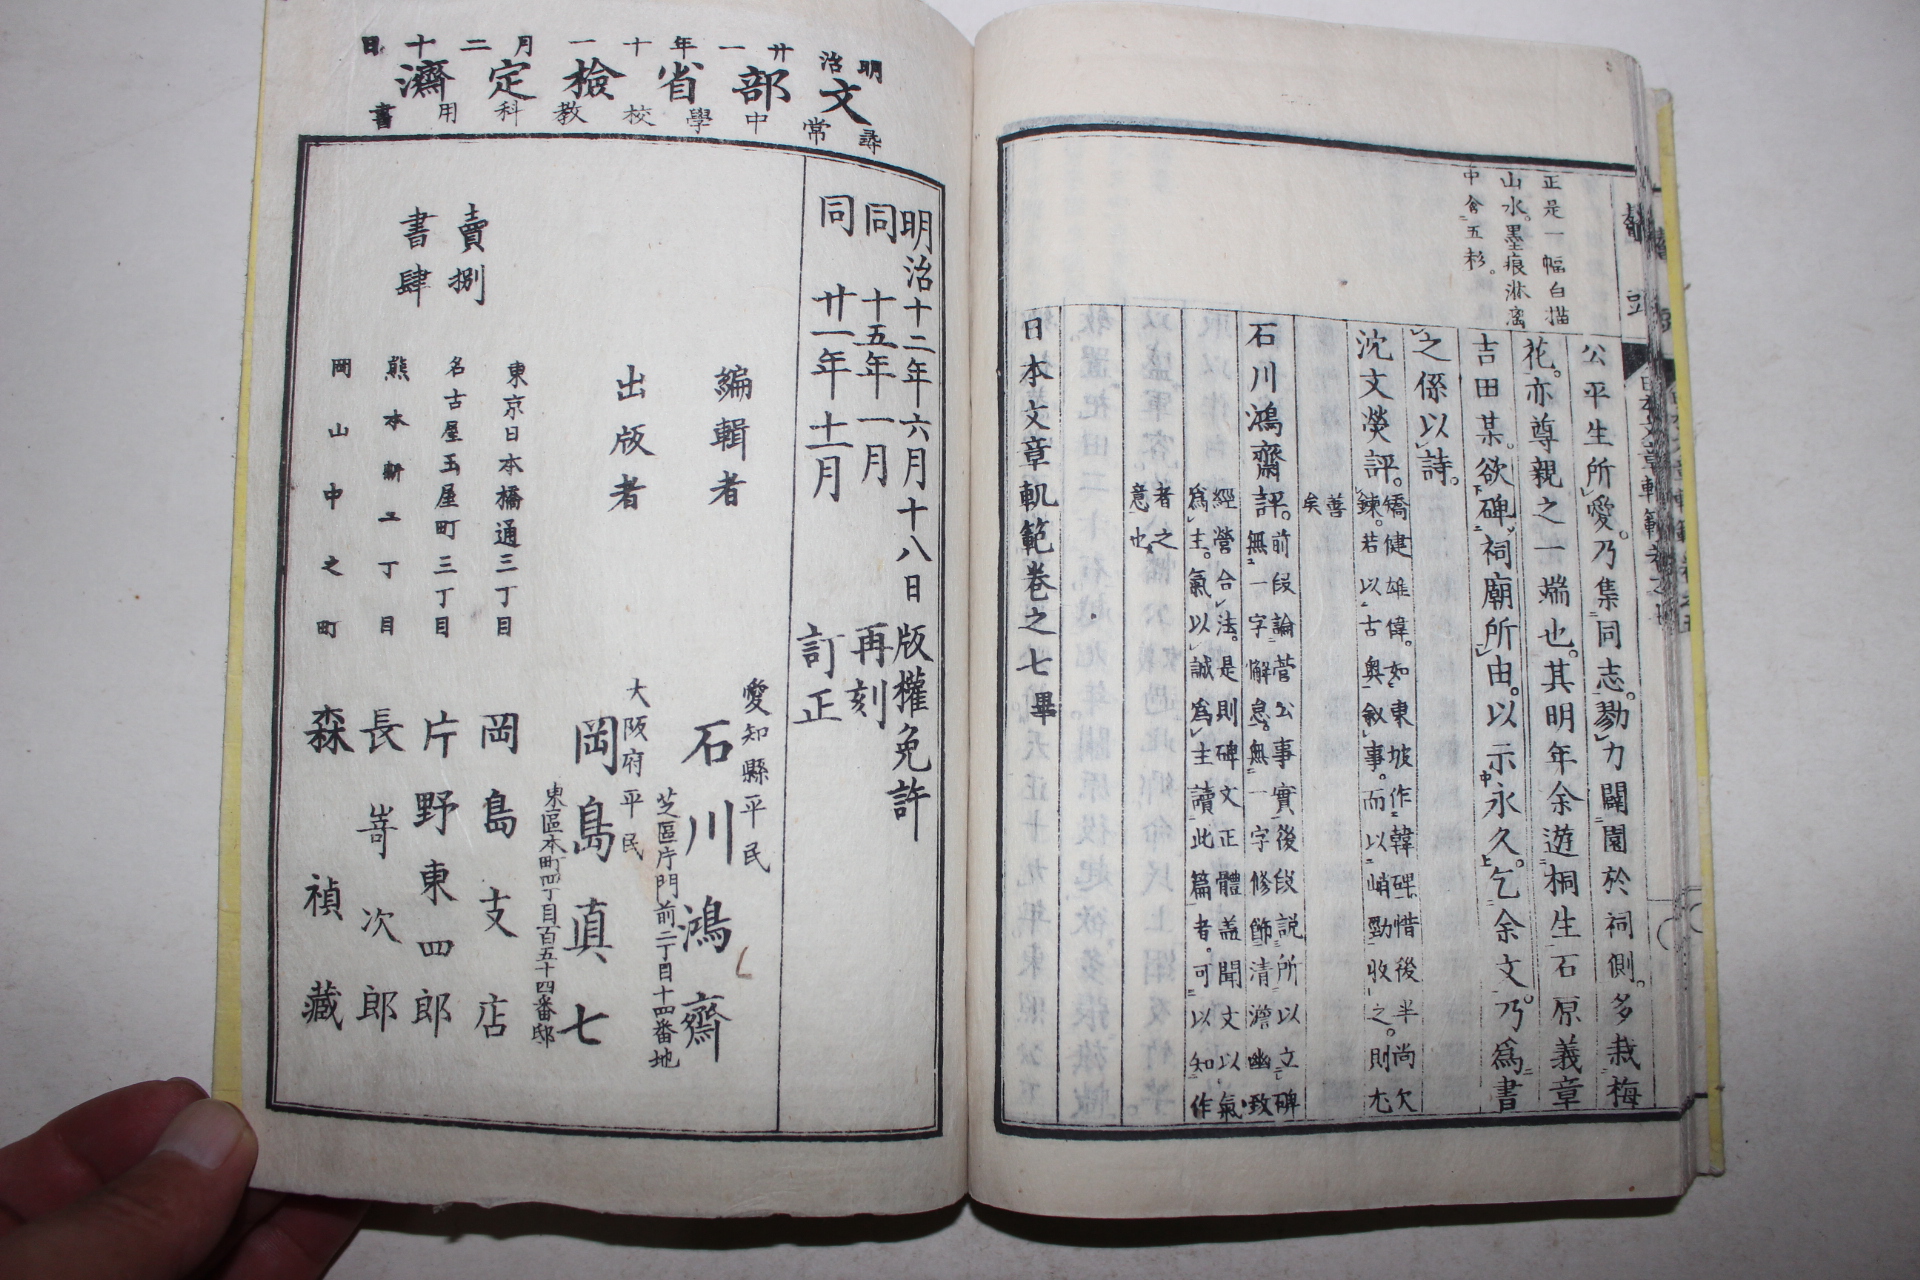 正是一幅白描
山水。墨痕淋漓
中含五彩。
公平生所愛。乃集同志。勠力闢園於祠側。多栽梅
花。亦尊親之一端也。其明年余遊桐生石原義章
吉田某。欲碑祠廟所由。以示永久。乞余文。乃爲書
之係以詩。
沈文熒評。矯健雄偉。如東坡作韓碑。惜後半尚欠
鍊。若以古奥敘事。而以峭勁收之。則尤
善
矣
石川鴻齋評。前段論菅公事實後段説所以立碑
無一字懈怠。無一字修飾清澹幽致
經營合法。是則碑文正體盖聞文以氣
爲主。氣以誠爲主讀此篇者。可以知作
者之
意也
日本文章軌範卷之七畢
明治廿一年十一月二十日
文部省檢定濟
尋常中學校教科用書
明治十二年六月十八日版權免許
同十五年一月再刻
同廿一年十一月訂正
編輯者
愛知縣平民
石川鴻齋
芝區片門前二丁目十四番地
出版者
大阪府平民
岡島真七
東區本町四丁目百五十四番邸
賣捌
書肆
東京日本橋通三丁目 岡島支店
名古屋玉屋町三丁目 片野東四郎
熊本新二丁目 長嵜次郎
岡山中之町 森禎藏